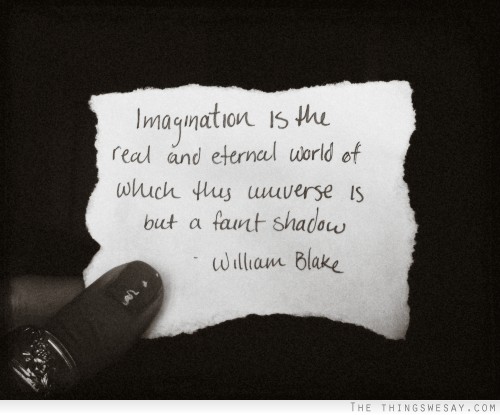 Imagination is the
real and eternal world of
which this universe is
but a faint shadow
- William Blake
THE THINGSWESAY.COM